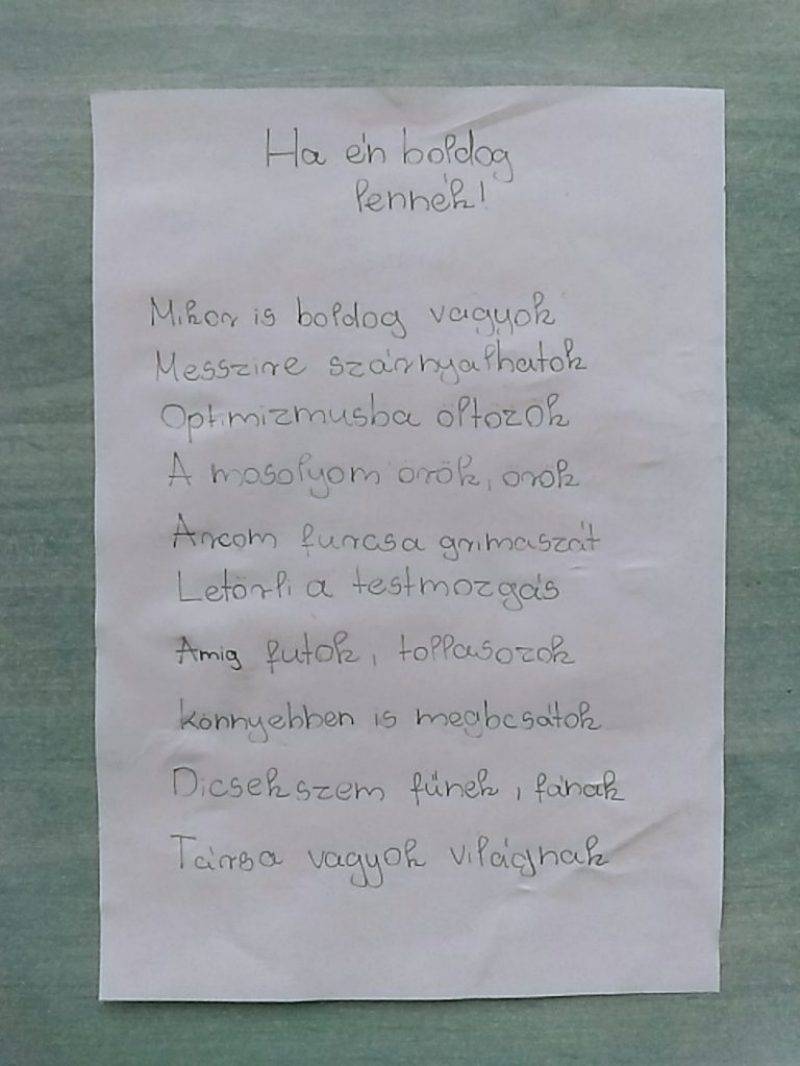 Ha én boldog
lennék!
Mikor is boldog vagyok
Messzire szárnyalhatok
Optimizmusba öltözök
A mosolyom örök, örök
Arcom furcsa grimaszát
Letörli a testmozgás
Amig futok, tollasozok
könnyebben is megbcsátok
Dicsekszem fűnek, fának
Társa vagyok világnak